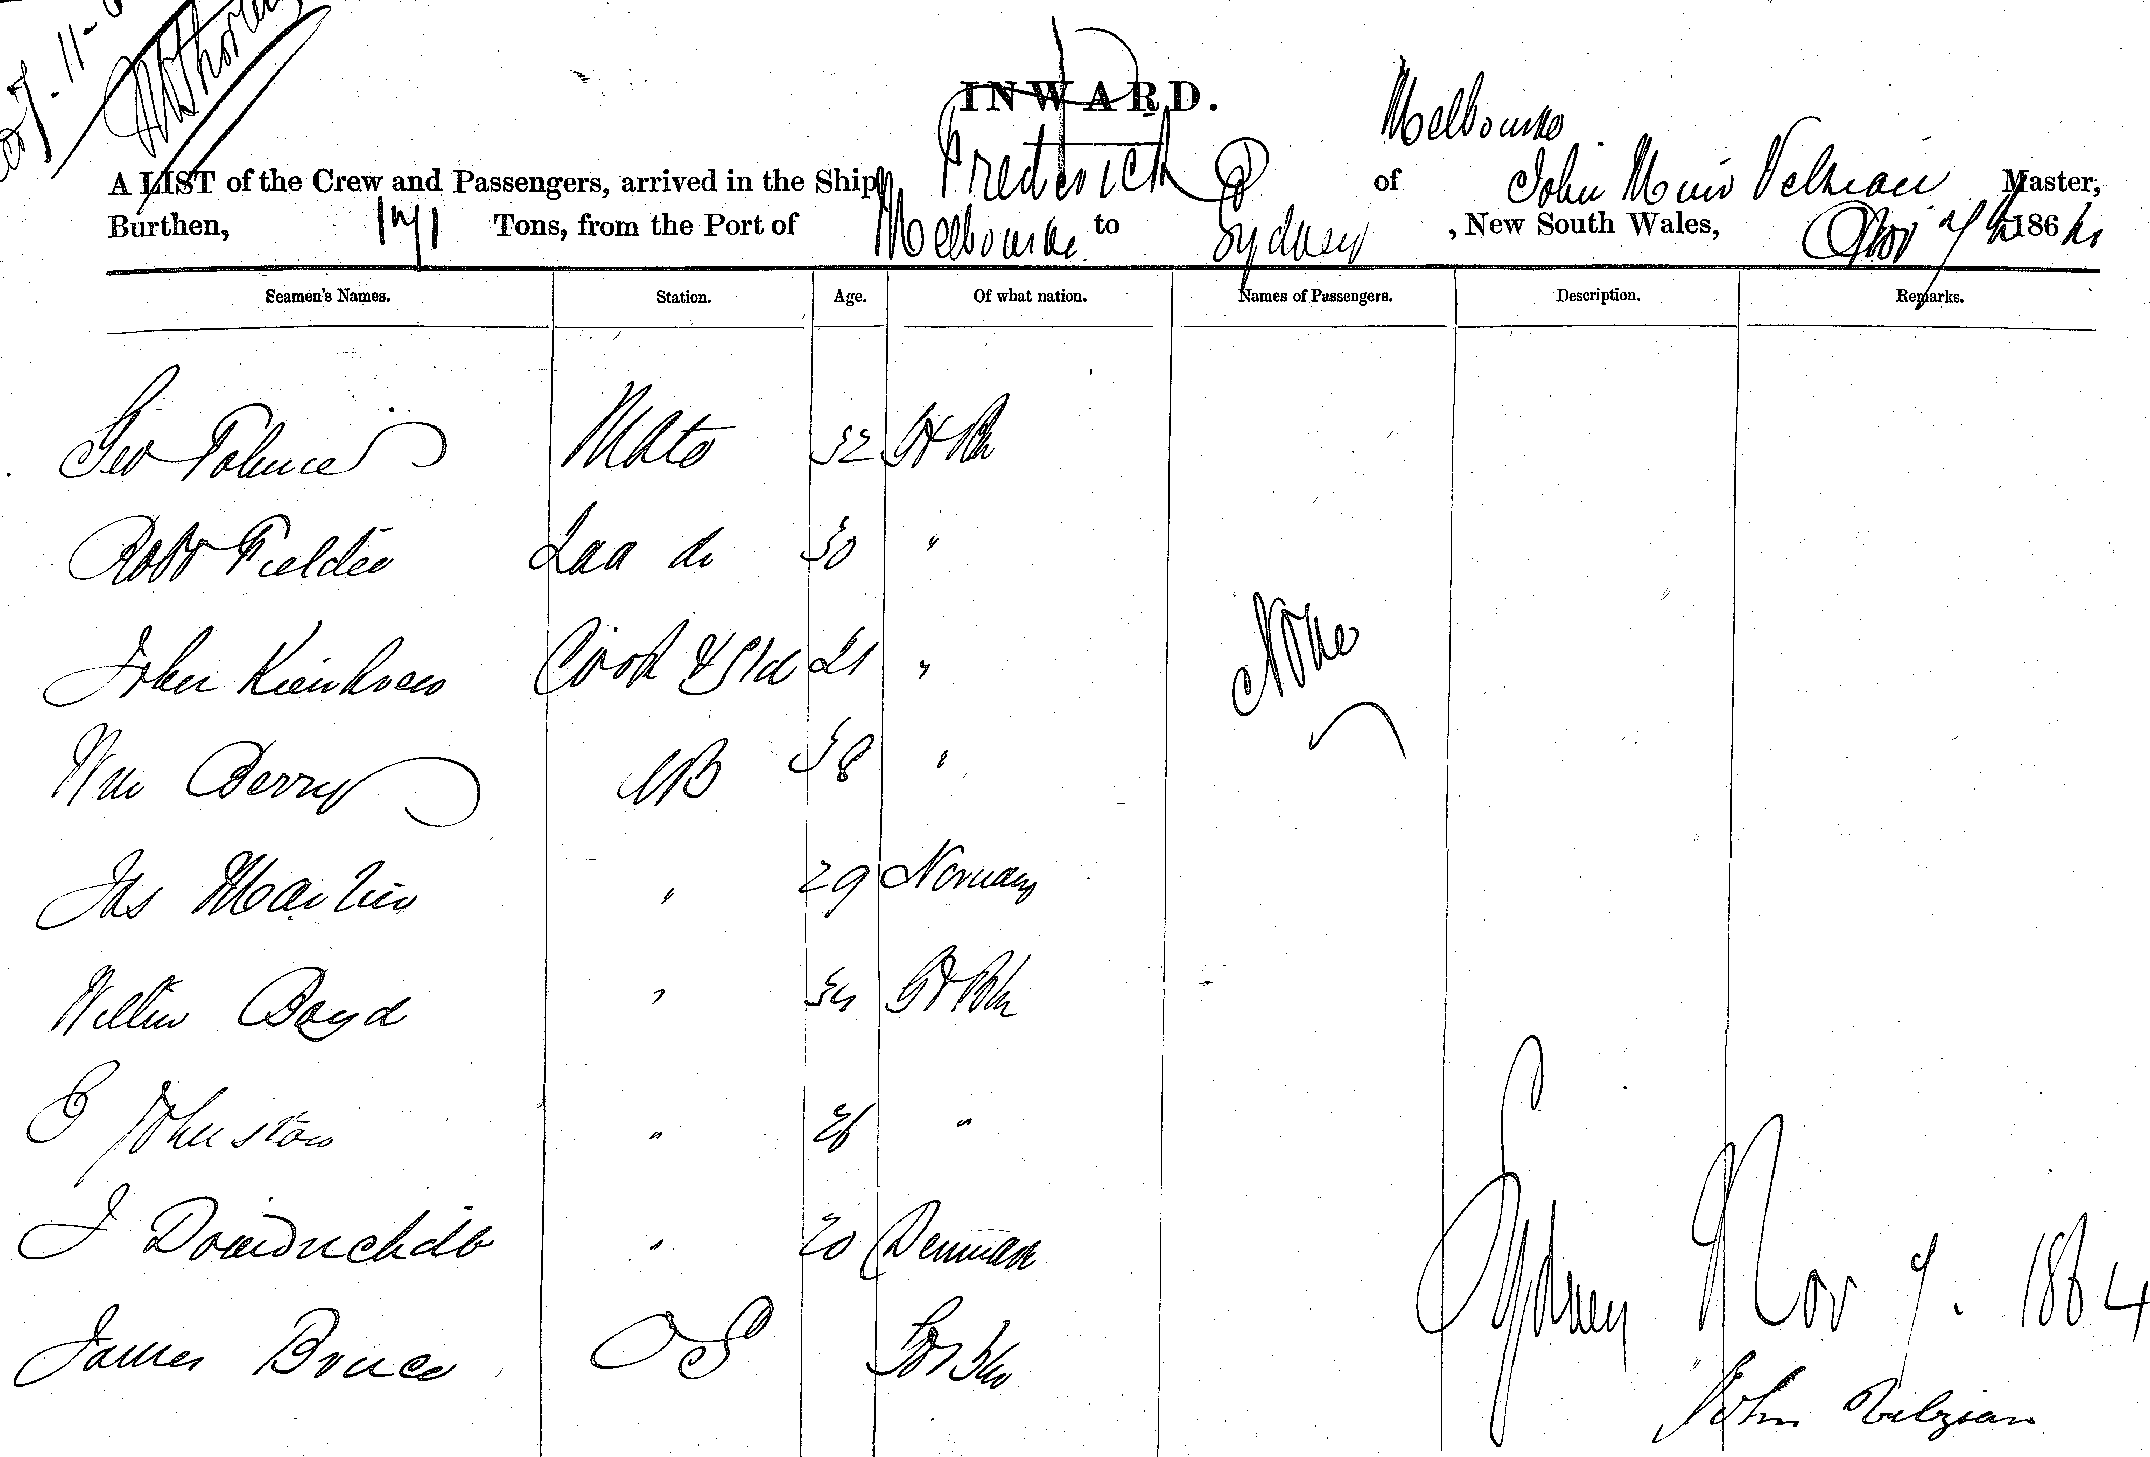 INWARD.
Melbourne
A LIST of the Crew and Passengers, arrived in the Ship Frederick of John Muir Velzian Master,
Burthen, Tons, from the Port of Melbourne to Sydney , New South Wales, Nov 7 1864
Seamen's Names. Station. Age. Of what nation. Names of Passengers. Description. Remarks.
Geo Mate 32 Gt Bn
Robt Fielder 2nd do 30 "
John Cook & Std 21 "
None
Wm Berry AB 38 "
Jas Martin " 29 Norway
Willm Boyd " 34 Gt Bn
G Johnston " 26 "
J " 20 Denmark
James Bruce OS Gt Bn
Sydney Nov 7. 1864
John Velzian